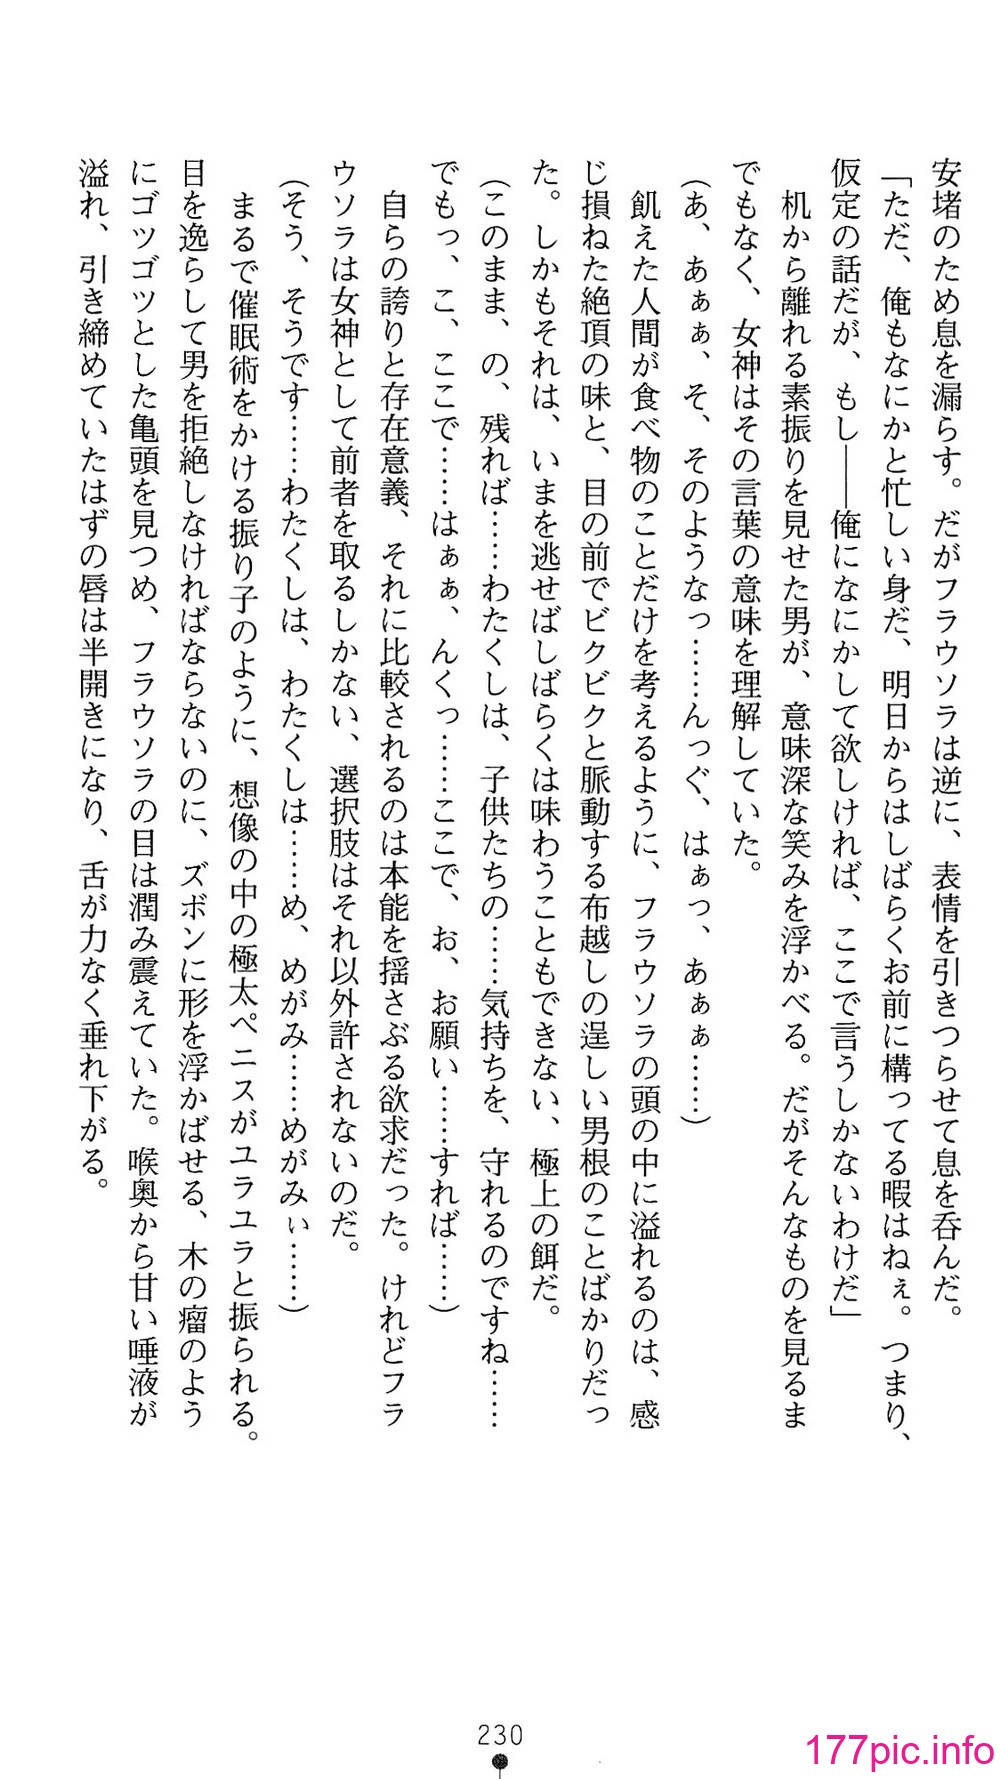 安堵のため息を漏らす。だがフラウソラは逆に、表情を引きつらせて息を呑んだ。
「ただ、俺もなにかと忙しい身だ、明日からはしばらくお前に構ってる暇はねぇ。つまり、
仮定の話だが、もし――俺になにかして欲しければ、ここで言うしかないわけだ」
机から離れる素振りを見せた男が、意味深な笑みを浮かべる。だがそんなものを見るま
でもなく、女神はその言葉の意味を理解していた。
(あ、あぁぁ、そ、そのようなっ……んっぐ、はぁっ、あぁぁ……)
飢えた人間が食べ物のことだけを考えるように、フラウソラの頭の中に溢れるのは、感
じ損ねた絶頂の味と、目の前でビクビクと脈動する布越しの逞しい男根のことばかりだっ
た。しかもそれは、いまを逃せばしばらくは味わうこともできない、極上の餌だ。
(このまま、の、残れば……わたくしは、子供たちの……気持ちを、守れるのですね……
でもっ、こ、ここで……はぁぁ、んくっ……ここで、お、お願い……すれば……)
自らの誇りと存在意義、それに比較されるのは本能を揺さぶる欲求だった。けれどフラ
ウソラは女神として前者を取るしかない、選択肢はそれ以外許されないのだ。
(そう、そうです……わたくしは、わたくしは……め、めがみ……めがみぃ……)
まるで催眠術をかける振り子のように、想像の中の極太ペニスがユラユラと振られる。
目を逸らして男を拒絶しなければならないのに、ズボンに形を浮かばせる、木の瘤のよう
にゴツゴツとした亀頭を見つめ、フラウソラの目は潤み震えていた。喉奥から甘い唾液が
溢れ、引き締めていたはずの唇は半開きになり、舌が力なく垂れ下がる。
230
177pic.info